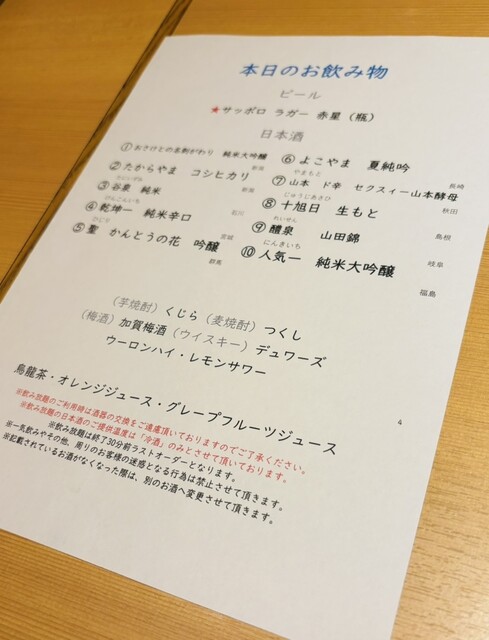 本日のお飲み物
ビール
★サッポロ ラガー 赤星（瓶）
日本酒
①おさけとの名刺がわり 純米大吟醸 新潟
②たからやま コシヒカリ 新潟
③谷泉 純米 石川
④乾坤一 純米辛口 宮城
⑤聖 かんとうの花 吟醸 群馬
⑥よこやま 夏純吟 長崎
⑦山本 ド辛 セクスィー山本酵母 秋田
⑧十旭日 生もと 島根
⑨醴泉 山田錦 岐阜
⑩人気一 純米大吟醸 福島
（芋焼酎）くじら（麦焼酎）つくし
（梅酒）加賀梅酒（ウイスキー）デュワーズ
ウーロンハイ・レモンサワー
烏龍茶・オレンジジュース・グレープフルーツジュース
※飲み放題のご利用時は酒器の交換をご遠慮頂いておりますのでご了承ください。
※飲み放題の日本酒のご提供温度は「冷酒」のみとさせて頂いております。
※飲み放題は終了30分前ラストオーダーとなります。
※一気飲みやその他、周りのお客様の迷惑となる行為は禁止させて頂きます。
※記載されているお酒がなくなった際は、別のお酒へ変更させて頂きます。
4